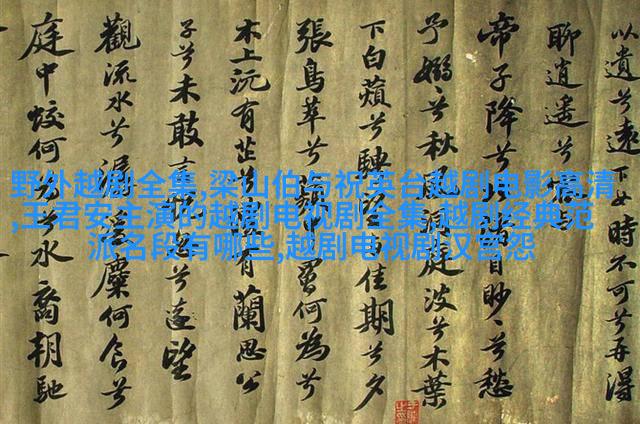 野外越剧全集,梁山伯与祝英台越剧电影高清
,王君安主演的越剧电视剧全集,越剧经典范
派名段有哪些,越剧电视剧汉宫怨
以遺兮遠女時不可兮再得
聊逍遙兮
帝子降兮渚目眇眇兮愁
予嫋嫋兮秋風洞庭波兮木葉
下白蘋兮騁望佳期兮夕
張鳥萃兮中罾何為兮
木上沅有芷兮有蘭思公
子兮未敢言兮遠望
觀流水兮潺麋何食兮
庭中蛟何兮水裔朝馳